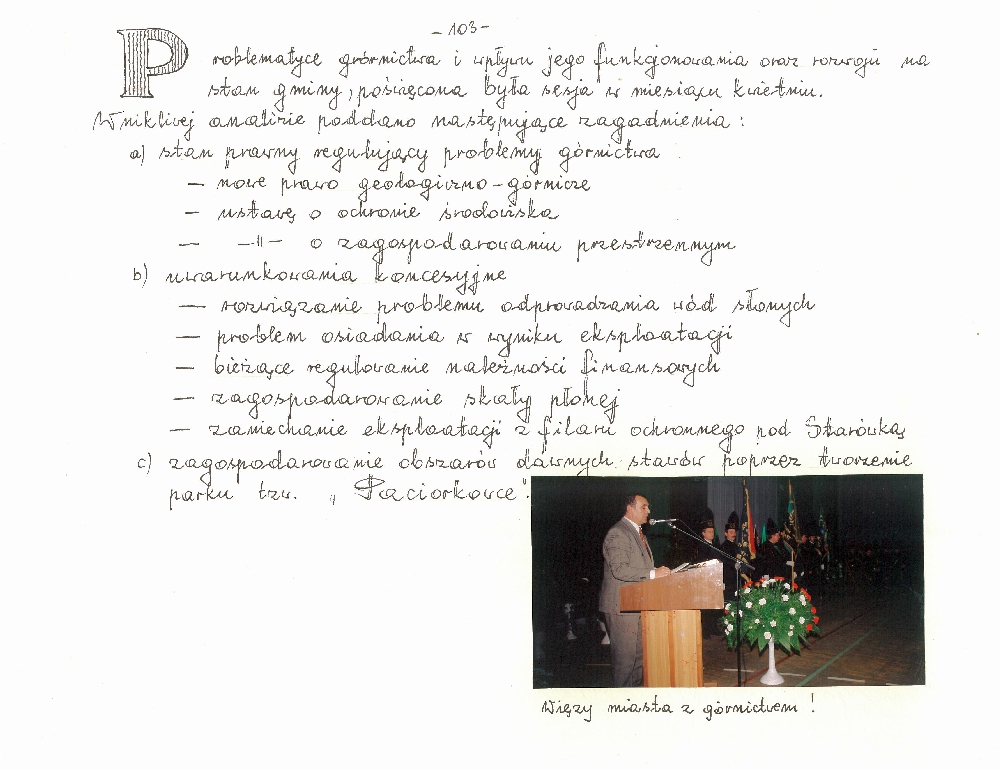 - 103 -
Problematyce górnictwa i wpływu jego funkcjonowania oraz rozwoju na
stan gminy, poświęcona była sesja w miesiącu kwietniu.
Wnikliwej analizie poddano następujące zagadnienia :
a) stan prawny regulujący problemy górnictwa
— nowe prawo geologiczno - górnicze
— ustawę o ochronie środowiska
— -"- o zagospodarowaniu przestrzennym
b) uwarunkowania koncesyjne
— rozwiązanie problemu odprowadzania wód słonych
— problem osiadania w wyniku eksploatacji
— bieżące regulowanie należności finansowych
— zagospodarowanie skały płonej
— zaniechanie eksploatacji z filaru ochronnego pod Starówką
c) zagospodarowanie obszarów dawnych stawów poprzez tworzenie
parku tzw. „Paciorkowce".
Więzy miasta z górnictwem !